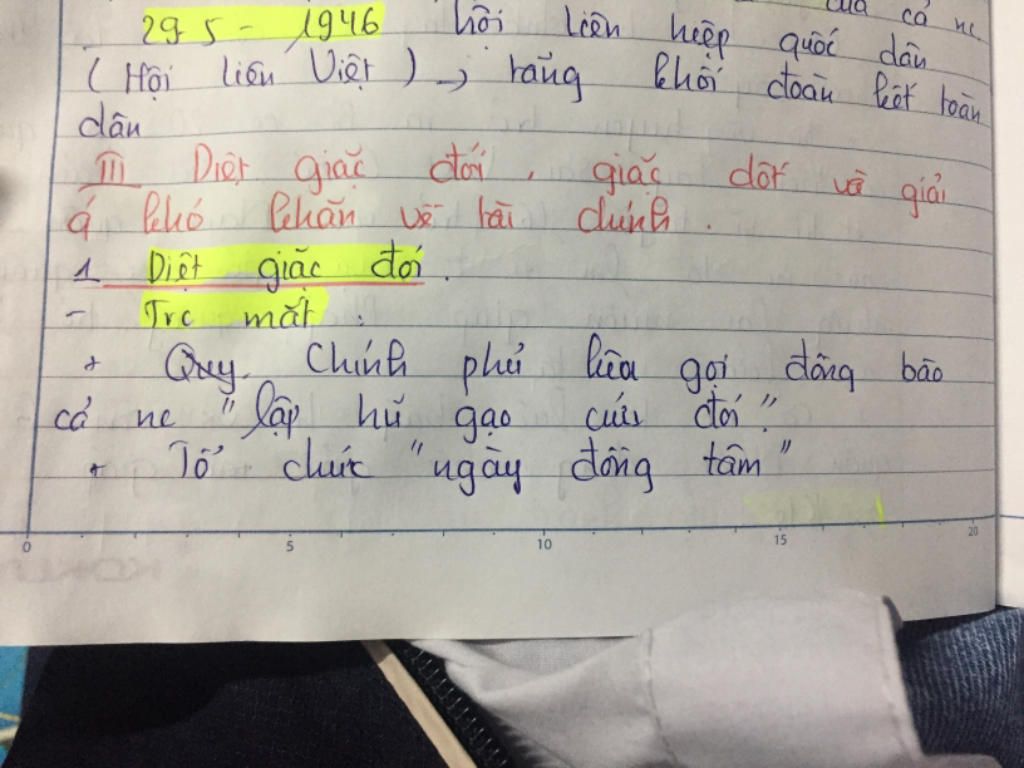 của cả nc
29 5 - 1946 hội liên hiệp quốc dân
(Hội liên Việt) → tăng khối đoàn kết toàn
dân
III Diệt giặc đói, giặc dốt và giải
q́ khó khăn về tài chính.
1 Diệt giặc đói.
- Trc mắt :
+ Quy. Chính phủ kêu gọi đồng bào
cả nc "lập hũ gạo cứu đói".
+ Tổ chức "ngày đồng tâm"
0 5 10 15 20